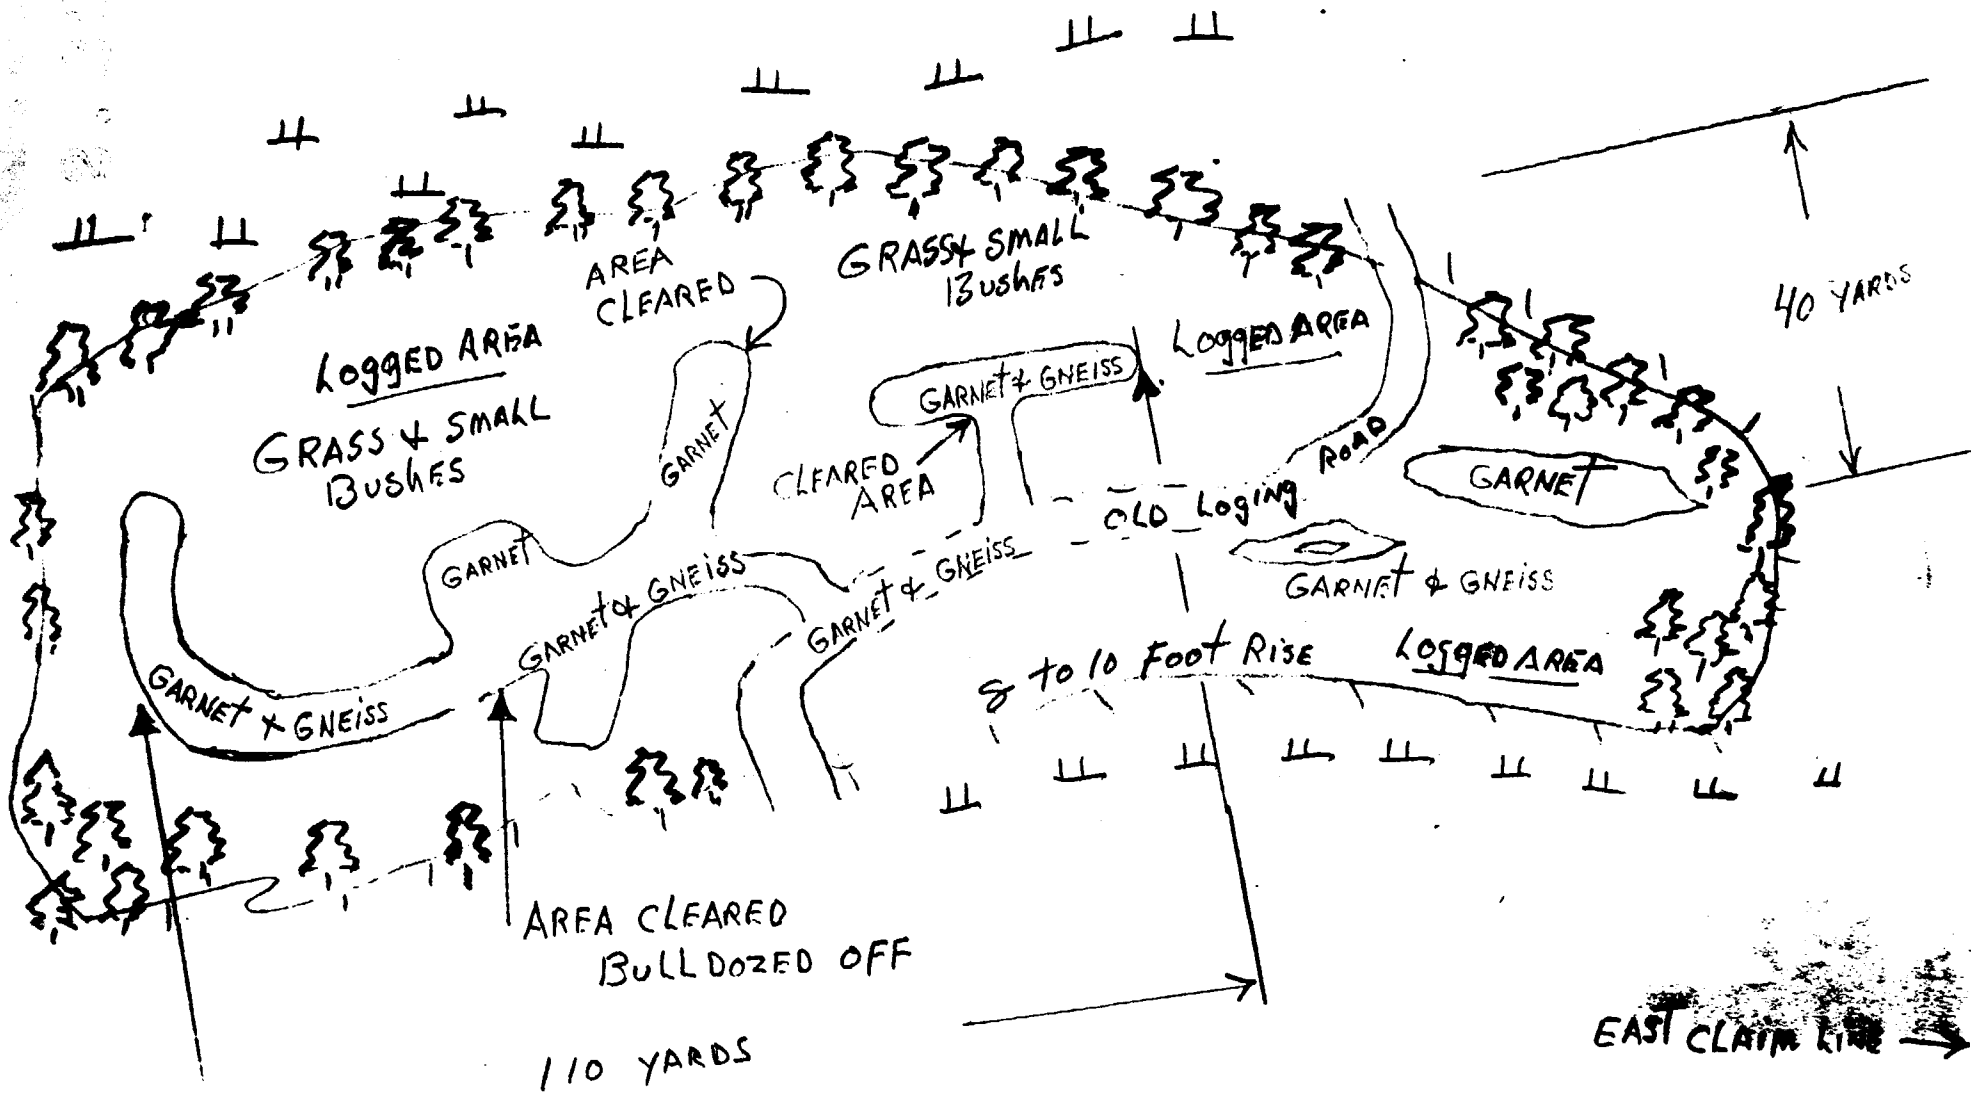 AREA
CLEARED
GRASS & SMALL
BUSHES
40 YARDS
LOGGED AREA
LOGGED AREA
GRASS & SMALL
BUSHES
GARNET & GNEISS
GARNET
ROAD
CLEARED
AREA
GARNET
OLD LOGING
GARNET
GARNET & GNEISS
GARNET & GNEISS
GARNET & GNEISS
GARNET & GNEISS
8 to 10 FOOT RISE
LOGGED AREA
GARNET & GNEISS
AREA CLEARED
BULLDOZED OFF
110 YARDS
EAST CLAIM LINE